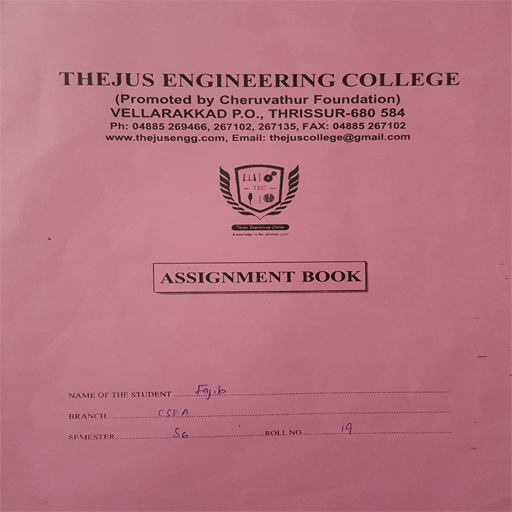 THEJUS ENGINEERING COLLEGE
(Promoted by Cheruvathur Foundation)
VELLARAKKAD P.O., THRISSUR-680 584
Ph: 04885 269466, 267102, 267135, FAX: 04885 267102
www.thejusengg.com, Email: thejuscollege@gmail.com
TEC
Thejus Engineering College
Knowledge is the ultimate goal
ASSIGNMENT BOOK
NAME OF THE STUDENT
BRANCH CSEA
SEMESTER S6 ROLL NO. 19